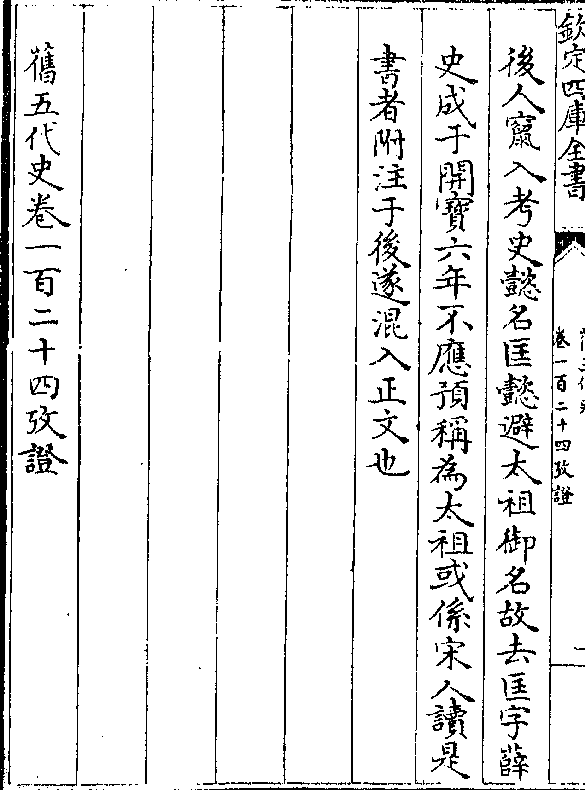 欽定四庫全書
卷一百二十四攷證
後人竄入考史懿名匡懿避太祖御名故去匡字薛
史成于開寶六年不應預稱為太祖或係宋人讀是
書者附注于後遂混入正文也
舊五代史卷一百二十四攷證